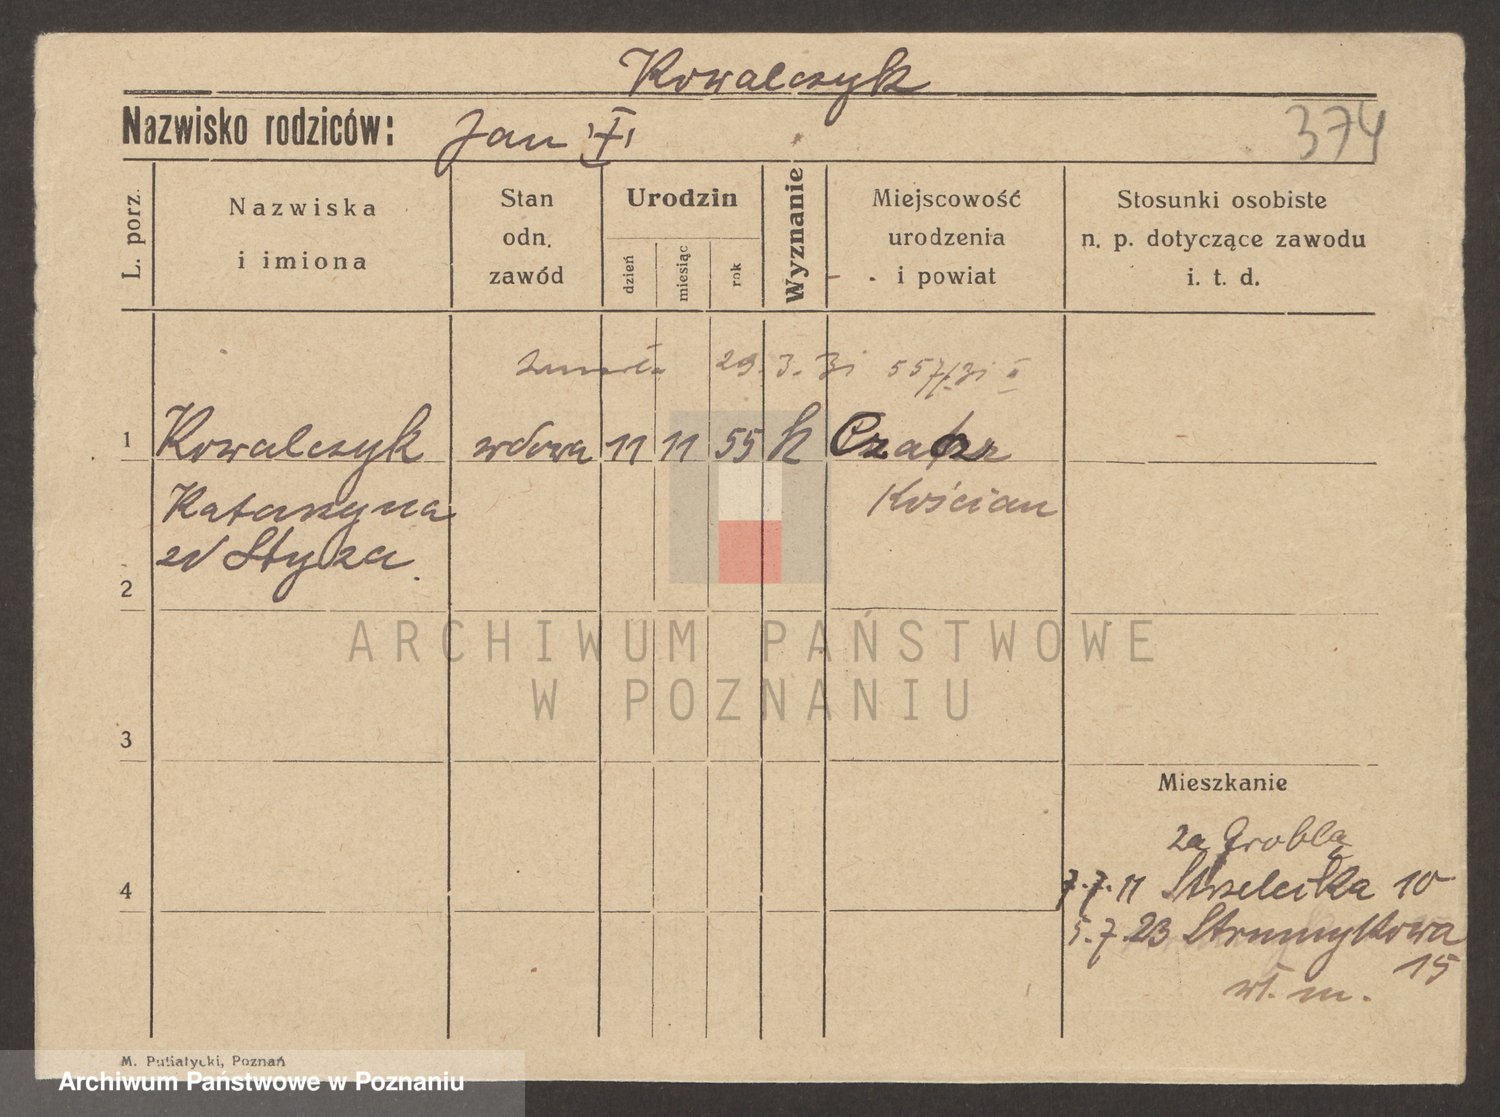 Kowalczyk
Nazwisko rodziców: Jan
374
L. porz.
Nazwiska
i imiona
Stan
odn.
zawód
Urodzin
dzień
miesiąc
rok
Wyznanie
Miejscowość
urodzenia
i powiat
Stosunki osobiste
n. p. dotyczące zawodu
i. t. d.
zmarła 29. 3. 31 557/31 II
1 Kowalczyk wdowa 11 11 55 k
Katarzyna Kościan
zd Styza
2
ARCHIWUM PAŃSTWOWE
W POZNANIU
3
Mieszkanie
2a Grobla
4
7.7.11 Strzelecka 10
5.7.23 Strumykowa
15
wł. m.
M. Putiatycki, Poznań
Archiwum Państwowe w Poznaniu